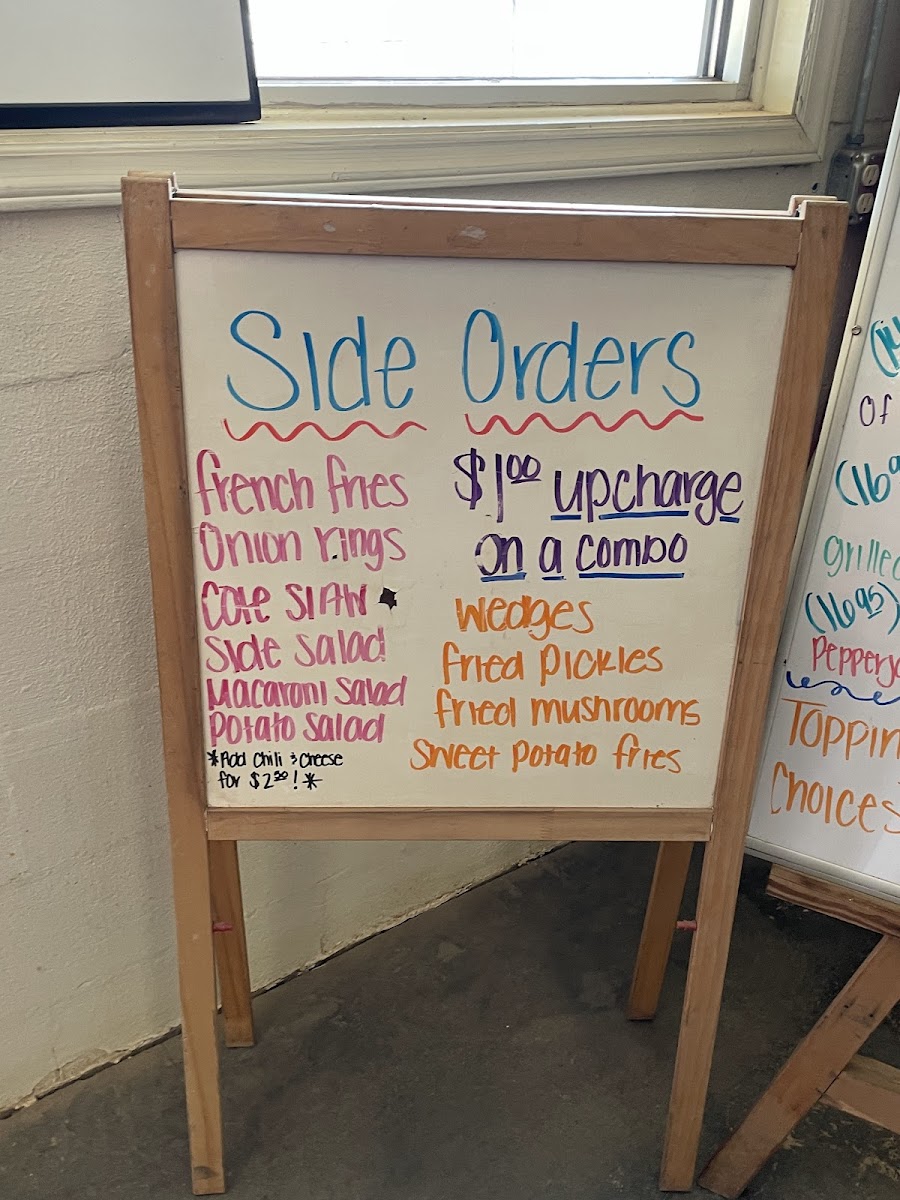 Side Orders
french fries
Onion rings
Cole SlAW
Side Salad
Macaroni Salad
Potato Salad
*Add Chili & Cheese
for $2.50!*
$1.00 upcharge
on a combo
Wedges
fried Pickles
fried mushrooms
Sweet Potato fries
Of
Toppin
Choices